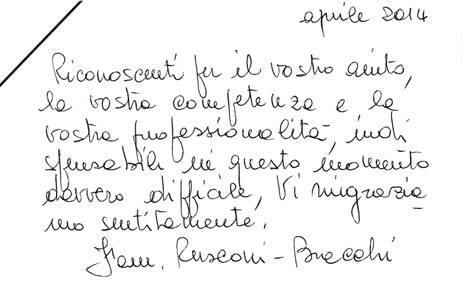 aprile 2014
Riconoscenti per il vostro aiuto,
la vostra competenza e la
vostra professionalità, indi
spensabili in questo momento
davvero difficile, Vi ringrazia
mo sentitamente.
Fam. Rusconi - Bracchi